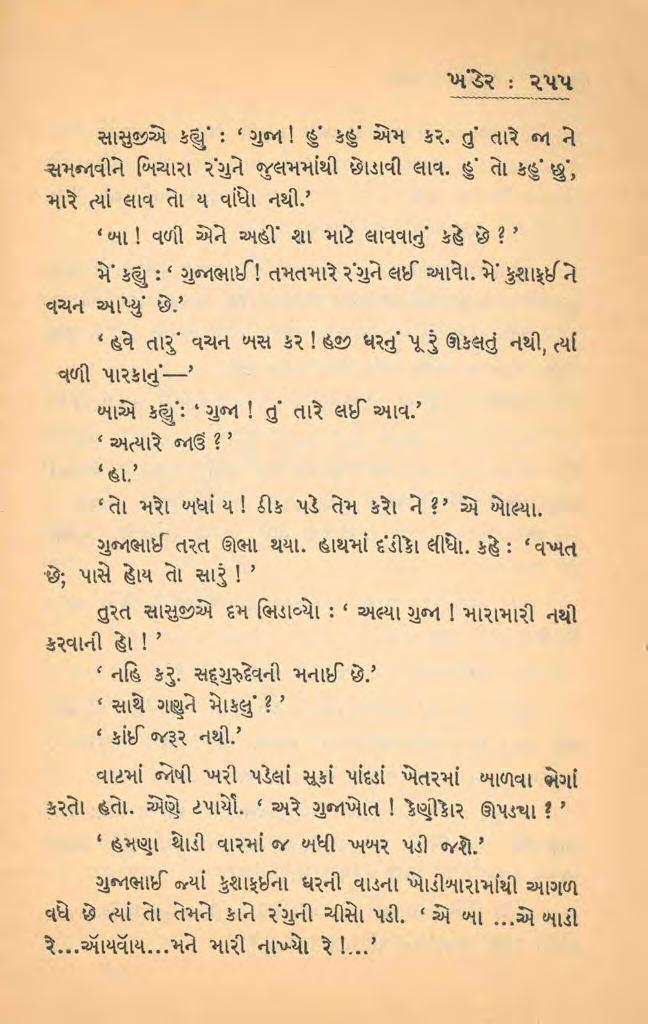 ખંડેર : ૨૫૫
સાસુજીએ કહ્યું : ‘ ગુજા! હું કહું એમ કર. તું તારે જા ને
સમજાવીને બિચારા રંગુને જુલમમાંથી છોડાવી લાવ. હું તો કહું છું,
મારે ત્યાં લાવ તો ય વાંધો નથી.’
‘ બા! વળી એને અહીં શા માટે લાવવાનું કહે છે ? ’
મેં કહ્યુ : ‘ ગુજાભાઈ! તમતમારે રંગુને લઈ આવો. મેં કુશાફઈ ને
વચન આપ્યું છે.’
‘ હવે તારું વચન બસ કર ! હજી ઘરનું પૂ રું ઊકલતું નથી, ત્યાં
વળી પારકાનું—’
બાએ કહ્યું: ‘ ગુજા ! તું તારે લઈ આવ.’
‘ અત્યારે જાઉં ? ’
‘ હા.’
‘ તો મરો બધાં ય! ઠીક પડે તેમ કરો ને ? ’ એ બોલ્યા.
ગુજાભાઈ તરત ઊભા થયા. હાથમાં દંડીકો લીધો. કહે : ‘ વખત
છે; પાસે હોય તો સારું ! ’
તુરત સાસુજીએ દમ ભિડાવ્યો : ‘ અલ્યા ગુજા ! મારામારી નથી
કરવાની હો ! ’
‘ નહિ કરુ. સદ્ગુરુદેવની મનાઈ છે.’
‘ સાથે ગણુને મોકલું ? ’
‘ કાંઈ જરૂર નથી.’
વાટમાં જોષી ખરી પડેલાં સૂકાં પાંદડાં ખેતરમાં બાળવા ભેગાં
કરતો હતો. એણે ટપાર્યો. ‘ અરે ગુજાખોત ! કેણીકોર ઊપડયા ? ’
‘ હમણા થોડી વારમાં જ બધી ખબર પડી જશે.’
ગુજાભાઈ જ્યાં કુશાફઈના ઘરની વાડના ખોડીબારામાંથી આગળ
વધે છે ત્યાં તો તેમને કાને રંગુની ચીસો પડી. ‘ એ બા ...એ બાડી
રે...ઑયવૉય...મને મારી નાખ્યો રે !...’